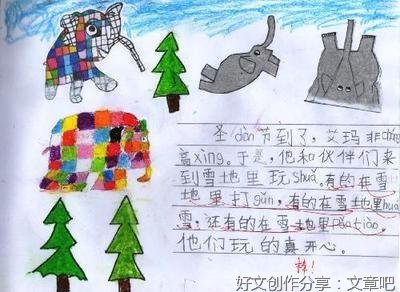 圣dàn节到了，艾玛非cháng
高xìng。于是，他和伙伴们来
到雪地里玩shuǎ。有的在雪
地里打gǔn，有的在雪地里huá
雪，还有的在雪地里pǎo tiào，
他们玩的真开心。
棒！
好文创作分享：文章吧